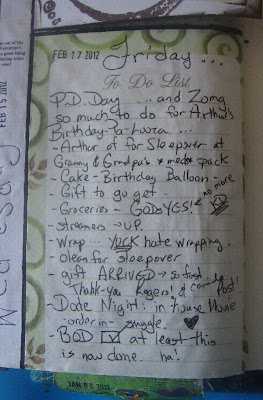 FEB 17 2012
Friday ...
To Do List
P.D. Day ... and Zomg
so much to do for Arthur's
Birthday-Pa-Looza ...
- Arthur off for Sleepover at
Granny & Grandpa's * meds pack
- Cake - Birthday Balloon -
Gift to go get.
no more
- Groceries - GODS YES!
- streamers → UP.
- Wrap ... YUCK hate wrapping.
- clean for sleepover
- gift ARRIVED → so fast
Thank-you Rogers! & Canada Post!
Date Night: in house Movie
- order in - snuggle.
- BOD at least this
is now done. ha!
FEB 15 2012
Wednesday
JAN 06 2012